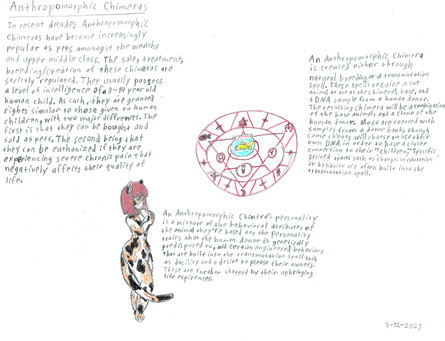 Anthropomorphic Chimeras
In recent decades Anthropomorphic
Chimeras have become increasingly
popular as pets amongst the wealthy
and upper middle class. The sale, treatment,
breeding/creation of these chimeras are
strictly regulated. They usually possess
a level of intelligence of a 8-14 year old
human child. As such, they are granted
rights similar to those given to human
children, with two major differences. The
first is that they can be bought and
sold as pets. The second being that
they can be euthanized if they are
experiencing severe chronic pain that
negatively affects their quality of
life.
An Anthropomorphic Chimera
is created either through
natural breeding or a transmutation
spell. These spells require a live
animal to act as the chimera's base, and
a DNA sample from a human donor.
The resulting chimera will be a combination
of the base animal and a clone of the
human donor. Most are created with
samples from a donor bank, though
some clients will choose to use their
own DNA in order to have a closer
connection to their "children". Specific
desired traits such as changes in coloration
or behavior are often built into the
transmutation spell.
An Anthropomorphic Chimera's personality
is a mixture of the behavioral attributes of
the animal they're based on, the personality
traits that the human donor is genetically
predisposed to, and certain engineered behaviors
that are built into the transmutation spell such
as docility and a desire to please their owners.
These are further shaped by their upbringing
life experiences.
3-12-2023